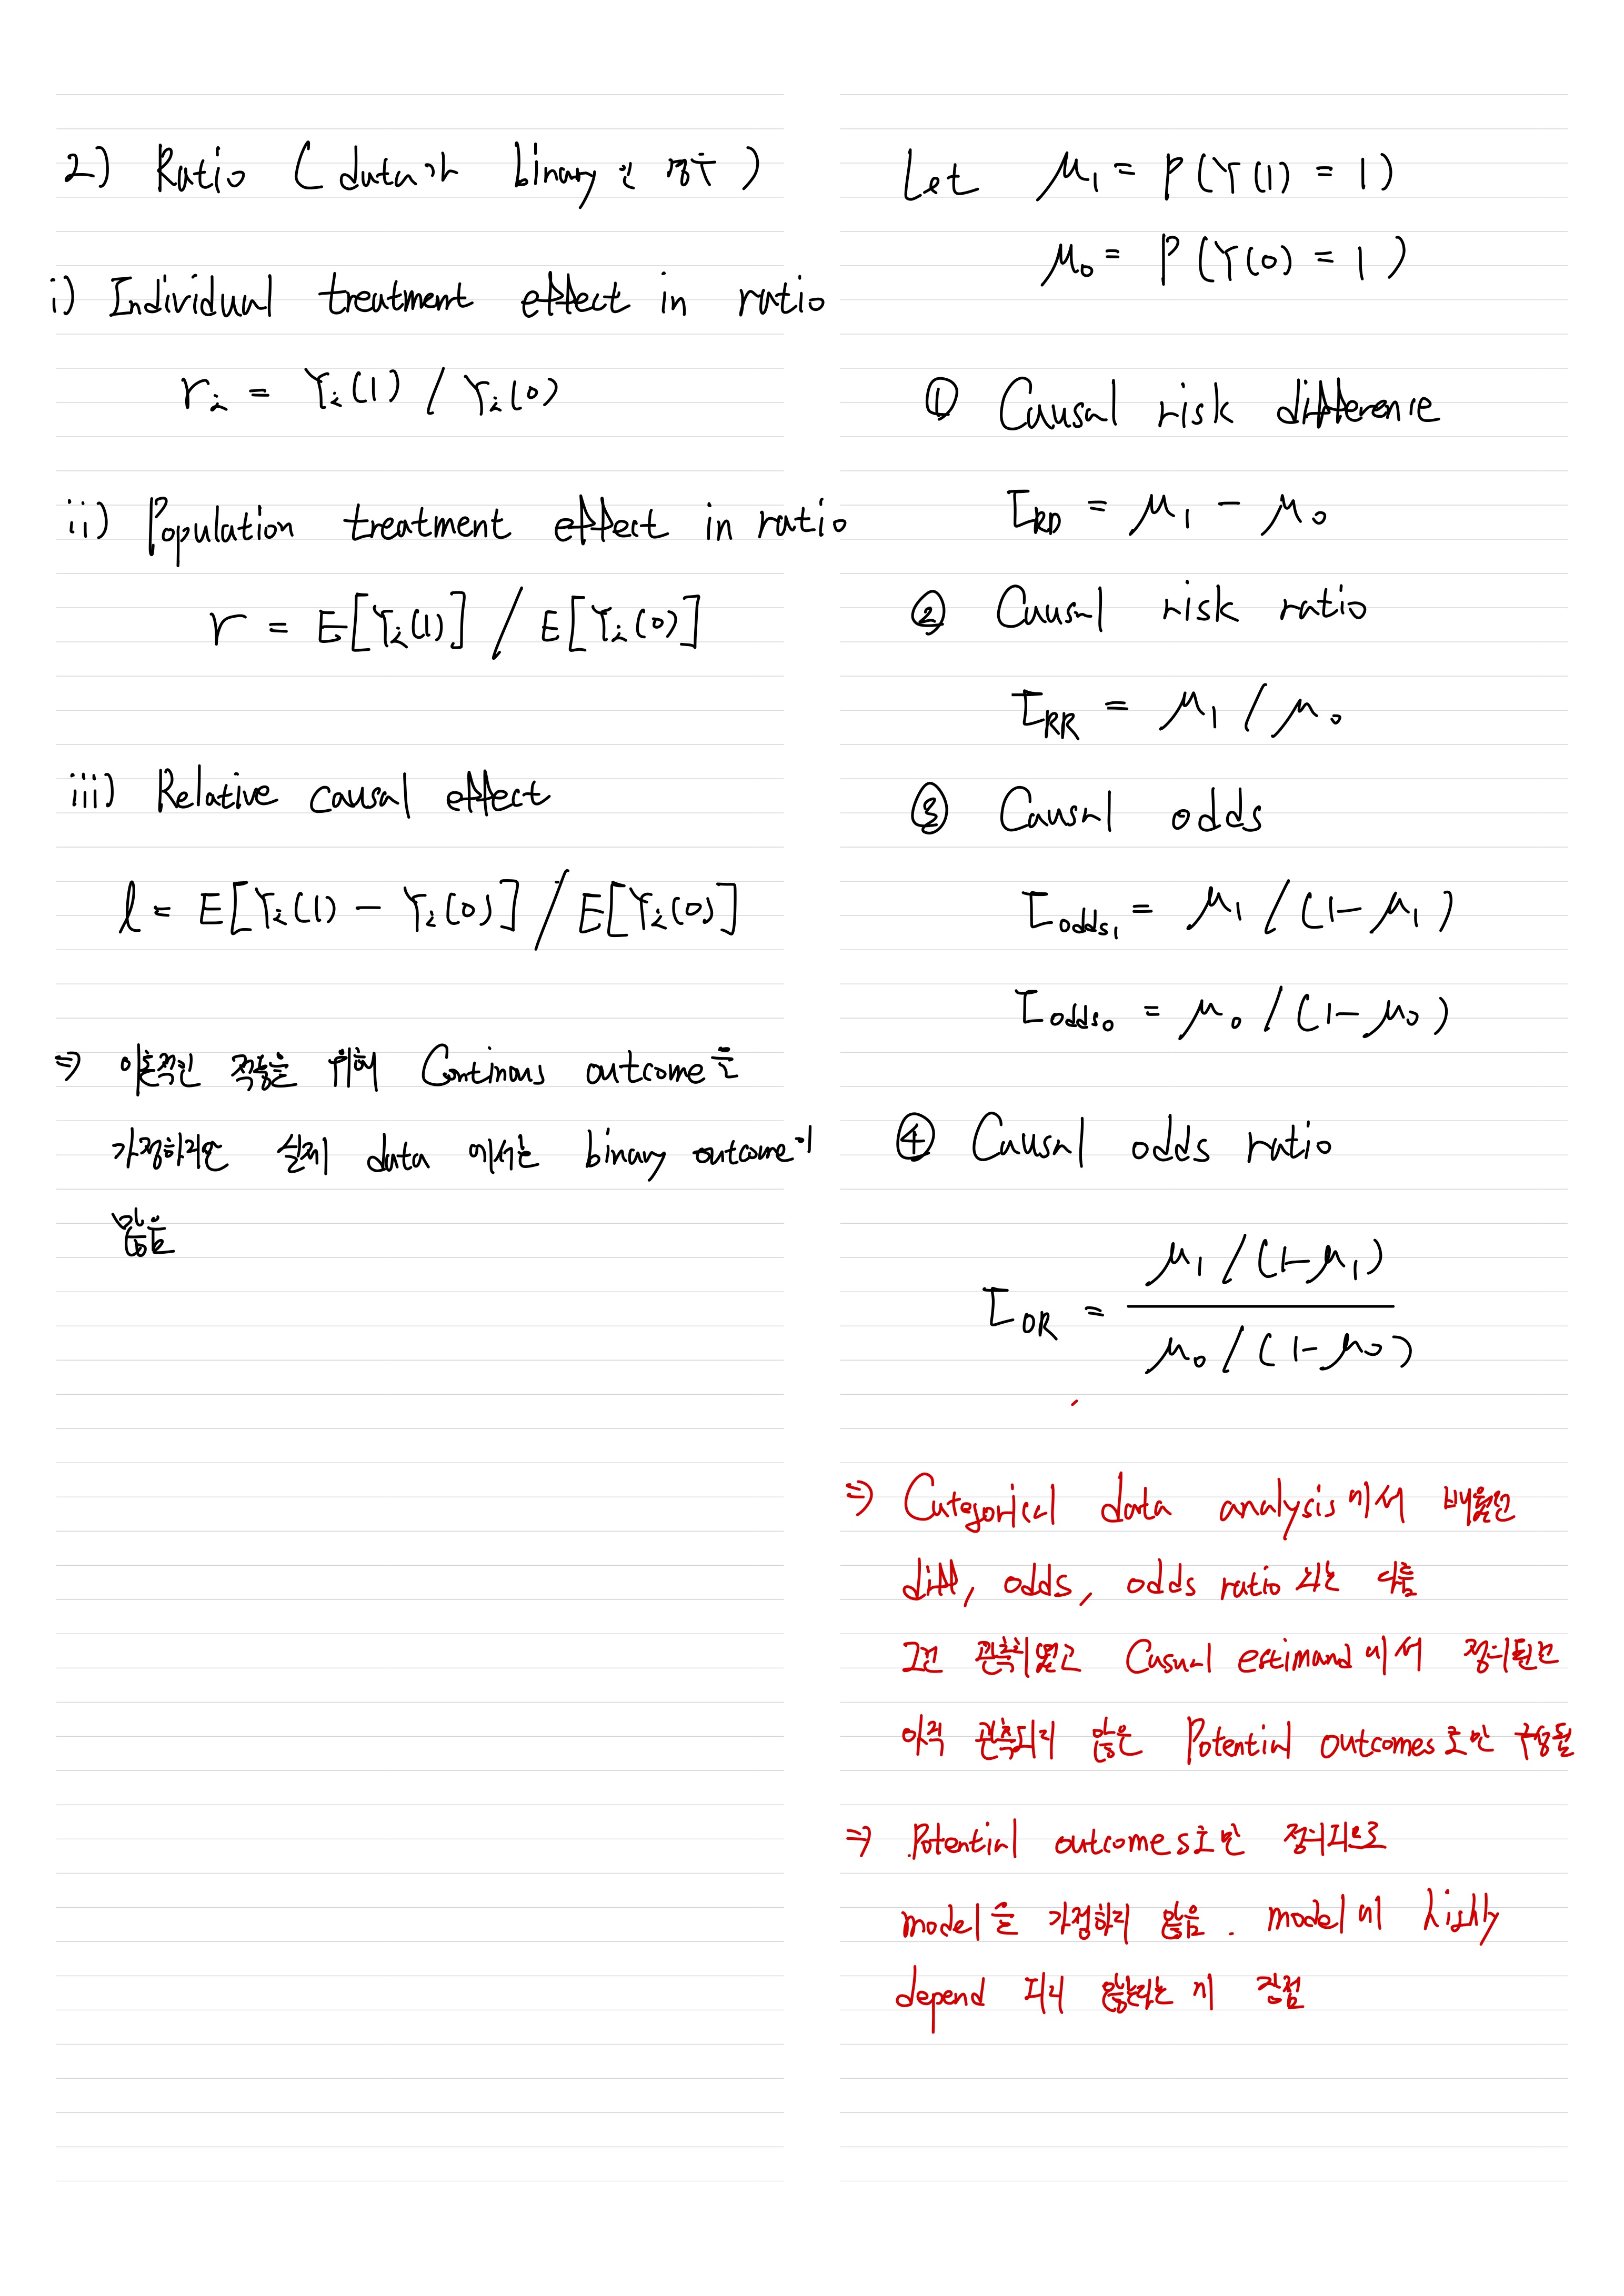 2) Ratio ( data가 binary인 경우 )
i) Individual treatment effect in ratio
r_i = Y_i(1) / Y_i(0)
ii) Population treatment effect in ratio
r = E[Y_i(1)] / E[Y_i(0)]
iii) Relative causal effect
l = E[Y_i(1) - Y_i(0)] / E[Y_i(0)]
⇒ 이론적인 적용을 위해 Continous outcome을
가정하지만 실제 data 에서는 binary outcome이
많음
Let μ₁ = P(Y(1) = 1)
μ₀ = P(Y(0) = 1)
① Causal risk difference
τ_RD = μ₁ - μ₀
② Causal risk ratio
τ_RR = μ₁ / μ₀
③ Causal odds
τ_odds₁ = μ₁ / (1-μ₁)
τ_odds₀ = μ₀ / (1-μ₀)
④ Causal odds ratio
τ_OR = μ₁/(1-μ₁) / μ₀/(1-μ₀)
⇒ Categorical data analysis에서 배웠던
diff, odds, odds ratio 와는 다름
그건 관측치였고 Casual estimand에서 정의된건
아직 관측되지 않은 Potential outcomes로만 구성됨
⇒ Potential outcomes로만 정의되므로
model을 가정하지 않음. model에 highly
depend 되지 않는다는 게 장점